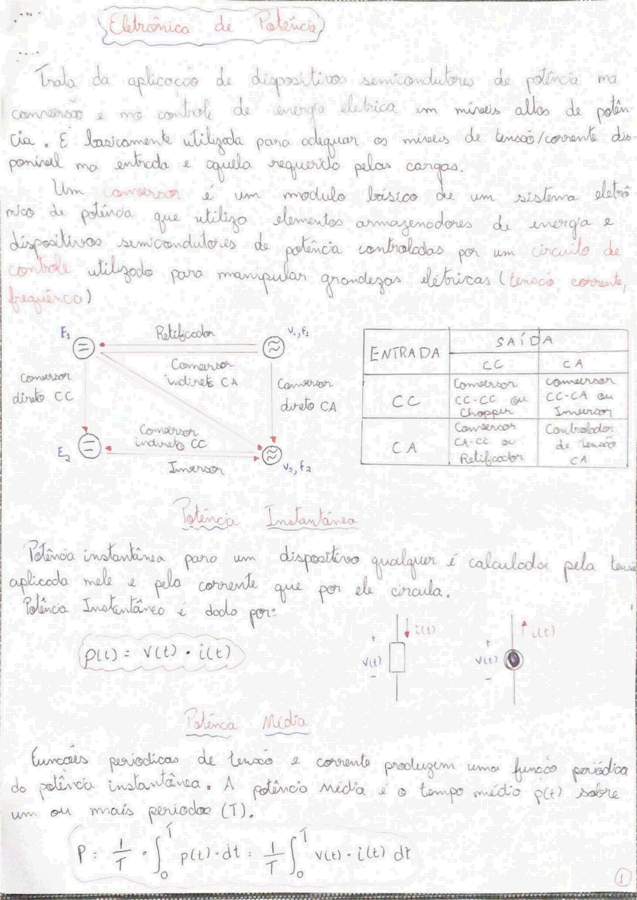 Eletrônica de Potência
Trata da aplicação de dispositivos semicondutores de potência na
conversão e no controle de energia elétrica em níveis altos de potên-
cia. É basicamente utilizada para adequar os níveis de tensão/corrente dis-
ponível na entrada e aquela requerida pelas cargas.
Um conversor é um módulo básico de um sistema eletrô-
nico de potência que utiliza elementos armazenadores de energia e
dispositivos semicondutores de potência controladas por um circuito de
controle utilizado para manipular grandezas elétricas (tensão corrente,
frequência)
E1
Retificador
V1, F1
Conversor
direto CC
Conversor
indireto CA
Conversor
direto CA
E2
Conversor
indireto CC
Inversor
V2, F2
ENTRADA
SAÍDA
CC
CA
CC
Conversor
CC-CC ou
Chopper
conversor
CC-CA ou
Inversor
CA
Conversor
CA-CC ou
Retificador
Controlador
de tensão
CA
Potência Instantânea
Potência instantânea para um dispositivo qualquer é calculada pela tensã
aplicada nele e pela corrente que por ele circula.
Potência Instantânea é dado por:
p(t) = v(t) · i(t)
+
v(t)
-
i(t)
+
v(t)
-
i(t)
Potência Média
Funções periódicas de tensão e corrente produzem uma função periódica
da potência instantânea. A potência média é o tempo médio p(t) sobre
um ou mais períodos (T).
P = 1/T · ∫₀ᵀ p(t)·dt = 1/T ∫₀ᵀ v(t)·i(t) dt
1